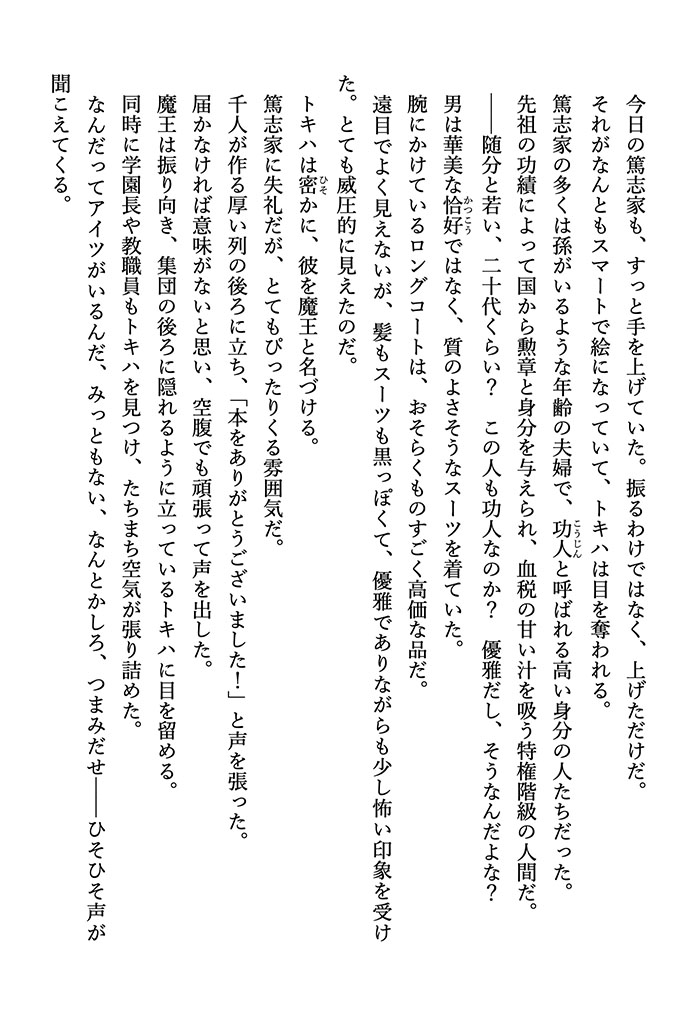 今日の篤志家も、すっと手を上げていた。振るわけではなく、上げただけだ。
それがなんともスマートで絵になっていて、トキハは目を奪われる。
篤志家の多くは孫がいるような年齢の夫婦で、功人と呼ばれる高い身分の人たちだった。
こうじん
先祖の功績によって国から勲章と身分を与えられ、血税の甘い汁を吸う特権階級の人間だ。
――随分と若い、二十代くらい？　この人も功人なのか？　優雅だし、そうなんだよな？
男は華美な恰好ではなく、質のよさそうなスーツを着ていた。
かっこう
腕にかけているロングコートは、おそらくものすごく高価な品だ。
遠目でよく見えないが、髪もスーツも黒っぽくて、優雅でありながらも少し怖い印象を受け
た。とても威圧的に見えたのだ。
トキハは密かに、彼を魔王と名づける。
ひそ
篤志家に失礼だが、とてもぴったりくる雰囲気だ。
千人が作る厚い列の後ろに立ち、「本をありがとうございました！」と声を張った。
届かなければ意味がないと思い、空腹でも頑張って声を出した。
魔王は振り向き、集団の後ろに隠れるように立っているトキハに目を留める。
同時に学園長や教職員もトキハを見つけ、たちまち空気が張り詰めた。
なんだってアイツがいるんだ、みっともない、なんとかしろ、つまみだせ――ひそひそ声が
聞こえてくる。